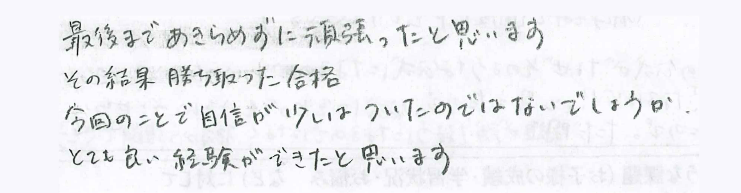 最後まであきらめずに頑張ったと思います
その結果 勝ち取った合格
今回のことで自信が少しはついたのではないでしょうか.
とても良い経験ができたと思います